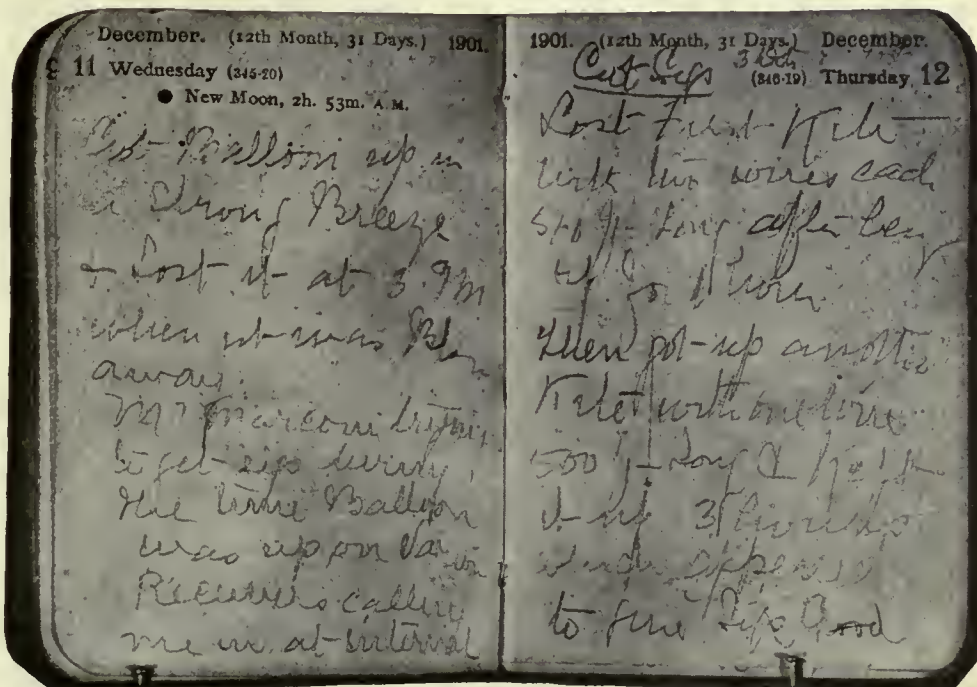 December. (12th Month, 31 Days.) 1901.
11 Wednesday (345-20)
● New Moon, 2h. 53m. A.M.
Balloon up in
a Strong Breeze
& Lost it at 3 PM
when it was
away.
Mr Marconi trying
to get sigs during
the time Balloon
was up on
Receivers calling
me in at interval
1901. (12th Month, 31 Days.) December.
(346-19) Thursday 12
Sigs
Lost First Kite
with two wires each
510 ft Long after being
up
then got up another
Kite with one wire
500 ft Long
3 hours
which appeared
to give Sigs Good